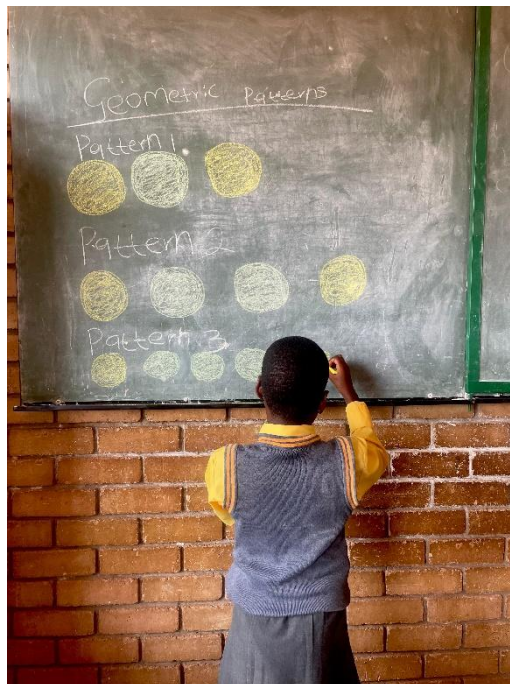 Geometric Patterns
Pattern 1
Pattern 2
Pattern 3